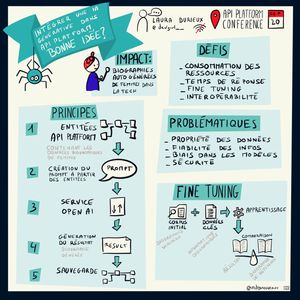 INTÉGRER UNE IA
GÉNÉRATIVE DANS
API PLATFORM,
BONNE IDÉE?
LAURA DURIEUX
API PLATFORM
CONFERENCE
20
IMPACT:
BIOGRAPHIES
AUTO GÉNÉRÉES
DE FEMMES DANS
LA TECH
DÉFIS
- CONSOMMATION DES
RESSOURCES
- TEMPS DE RÉPONSE
- FINE TUNING
- INTEROPÉRABILITÉ
PRINCIPES
1
ENTITÉES
API PLATFORM
CONTENANT LES
DONNÉES BIOGRAPHIQUES
DE FEMMES
2
CRÉATION DU
PROMPT À PARTIR
DES ENTITÉES
PROMPT
3
SERVICE
OPEN AI
4
GÉNÉRATION
DU RÉSULTAT
BIOGRAPHIE
RESULT
5
SAUVEGARDE
PROBLÉMATIQUES
- PROPRIÉTÉ DES DONNÉES
- FIABILITÉ DES INFOS
- BIAIS DANS LES MODÈLES
- SÉCURITÉ
FINE TUNING
CORPUS
INITIAL
+
DONNÉES
CLÉS
APPRENTISSAGE
COMPARAISON